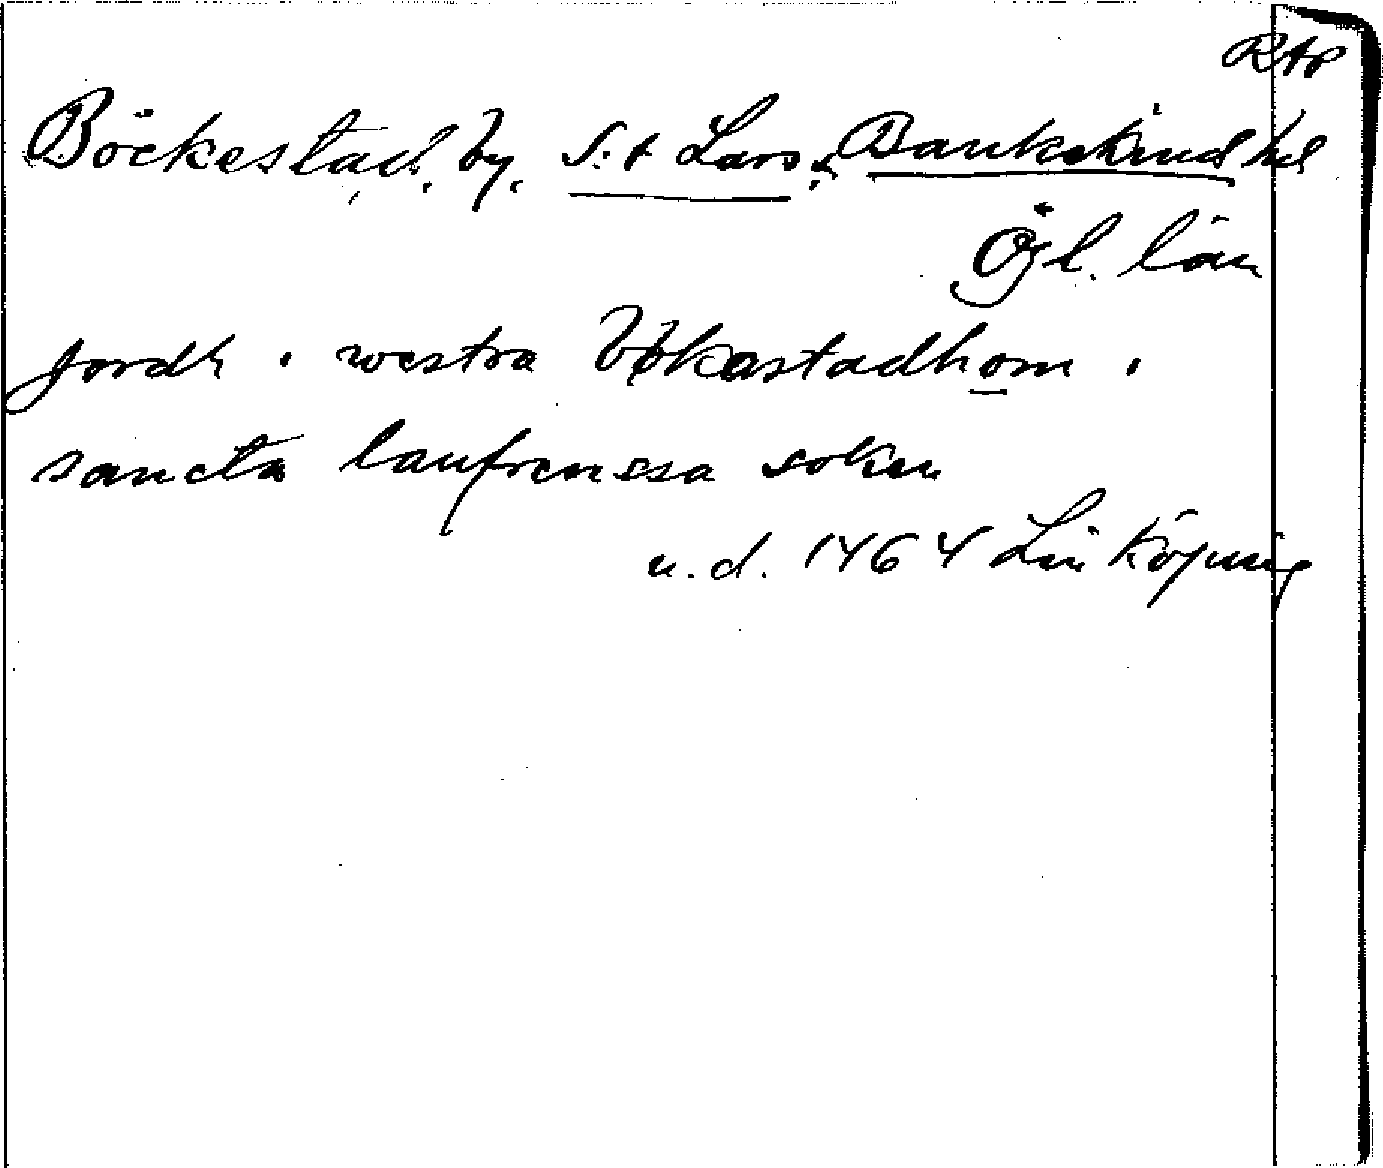 RAP
Böckestad, by, S:t Lars s, Bankekind hd
Ögl. län
jordh i westra bøkastadhom i
sancta laufrenssa sokn
u.d. 1464 Linköping